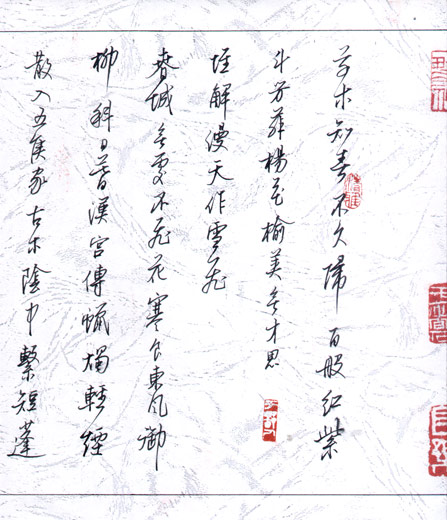 草木知春不久歸百般红紫
斗芳菲楊花榆荚無才思
惟解漫天作雪飛
春城無處不飛花寒食東風御
柳斜日暮漢宮傳蠟燭輕煙
散入五侯家古木陰中繫短蓬